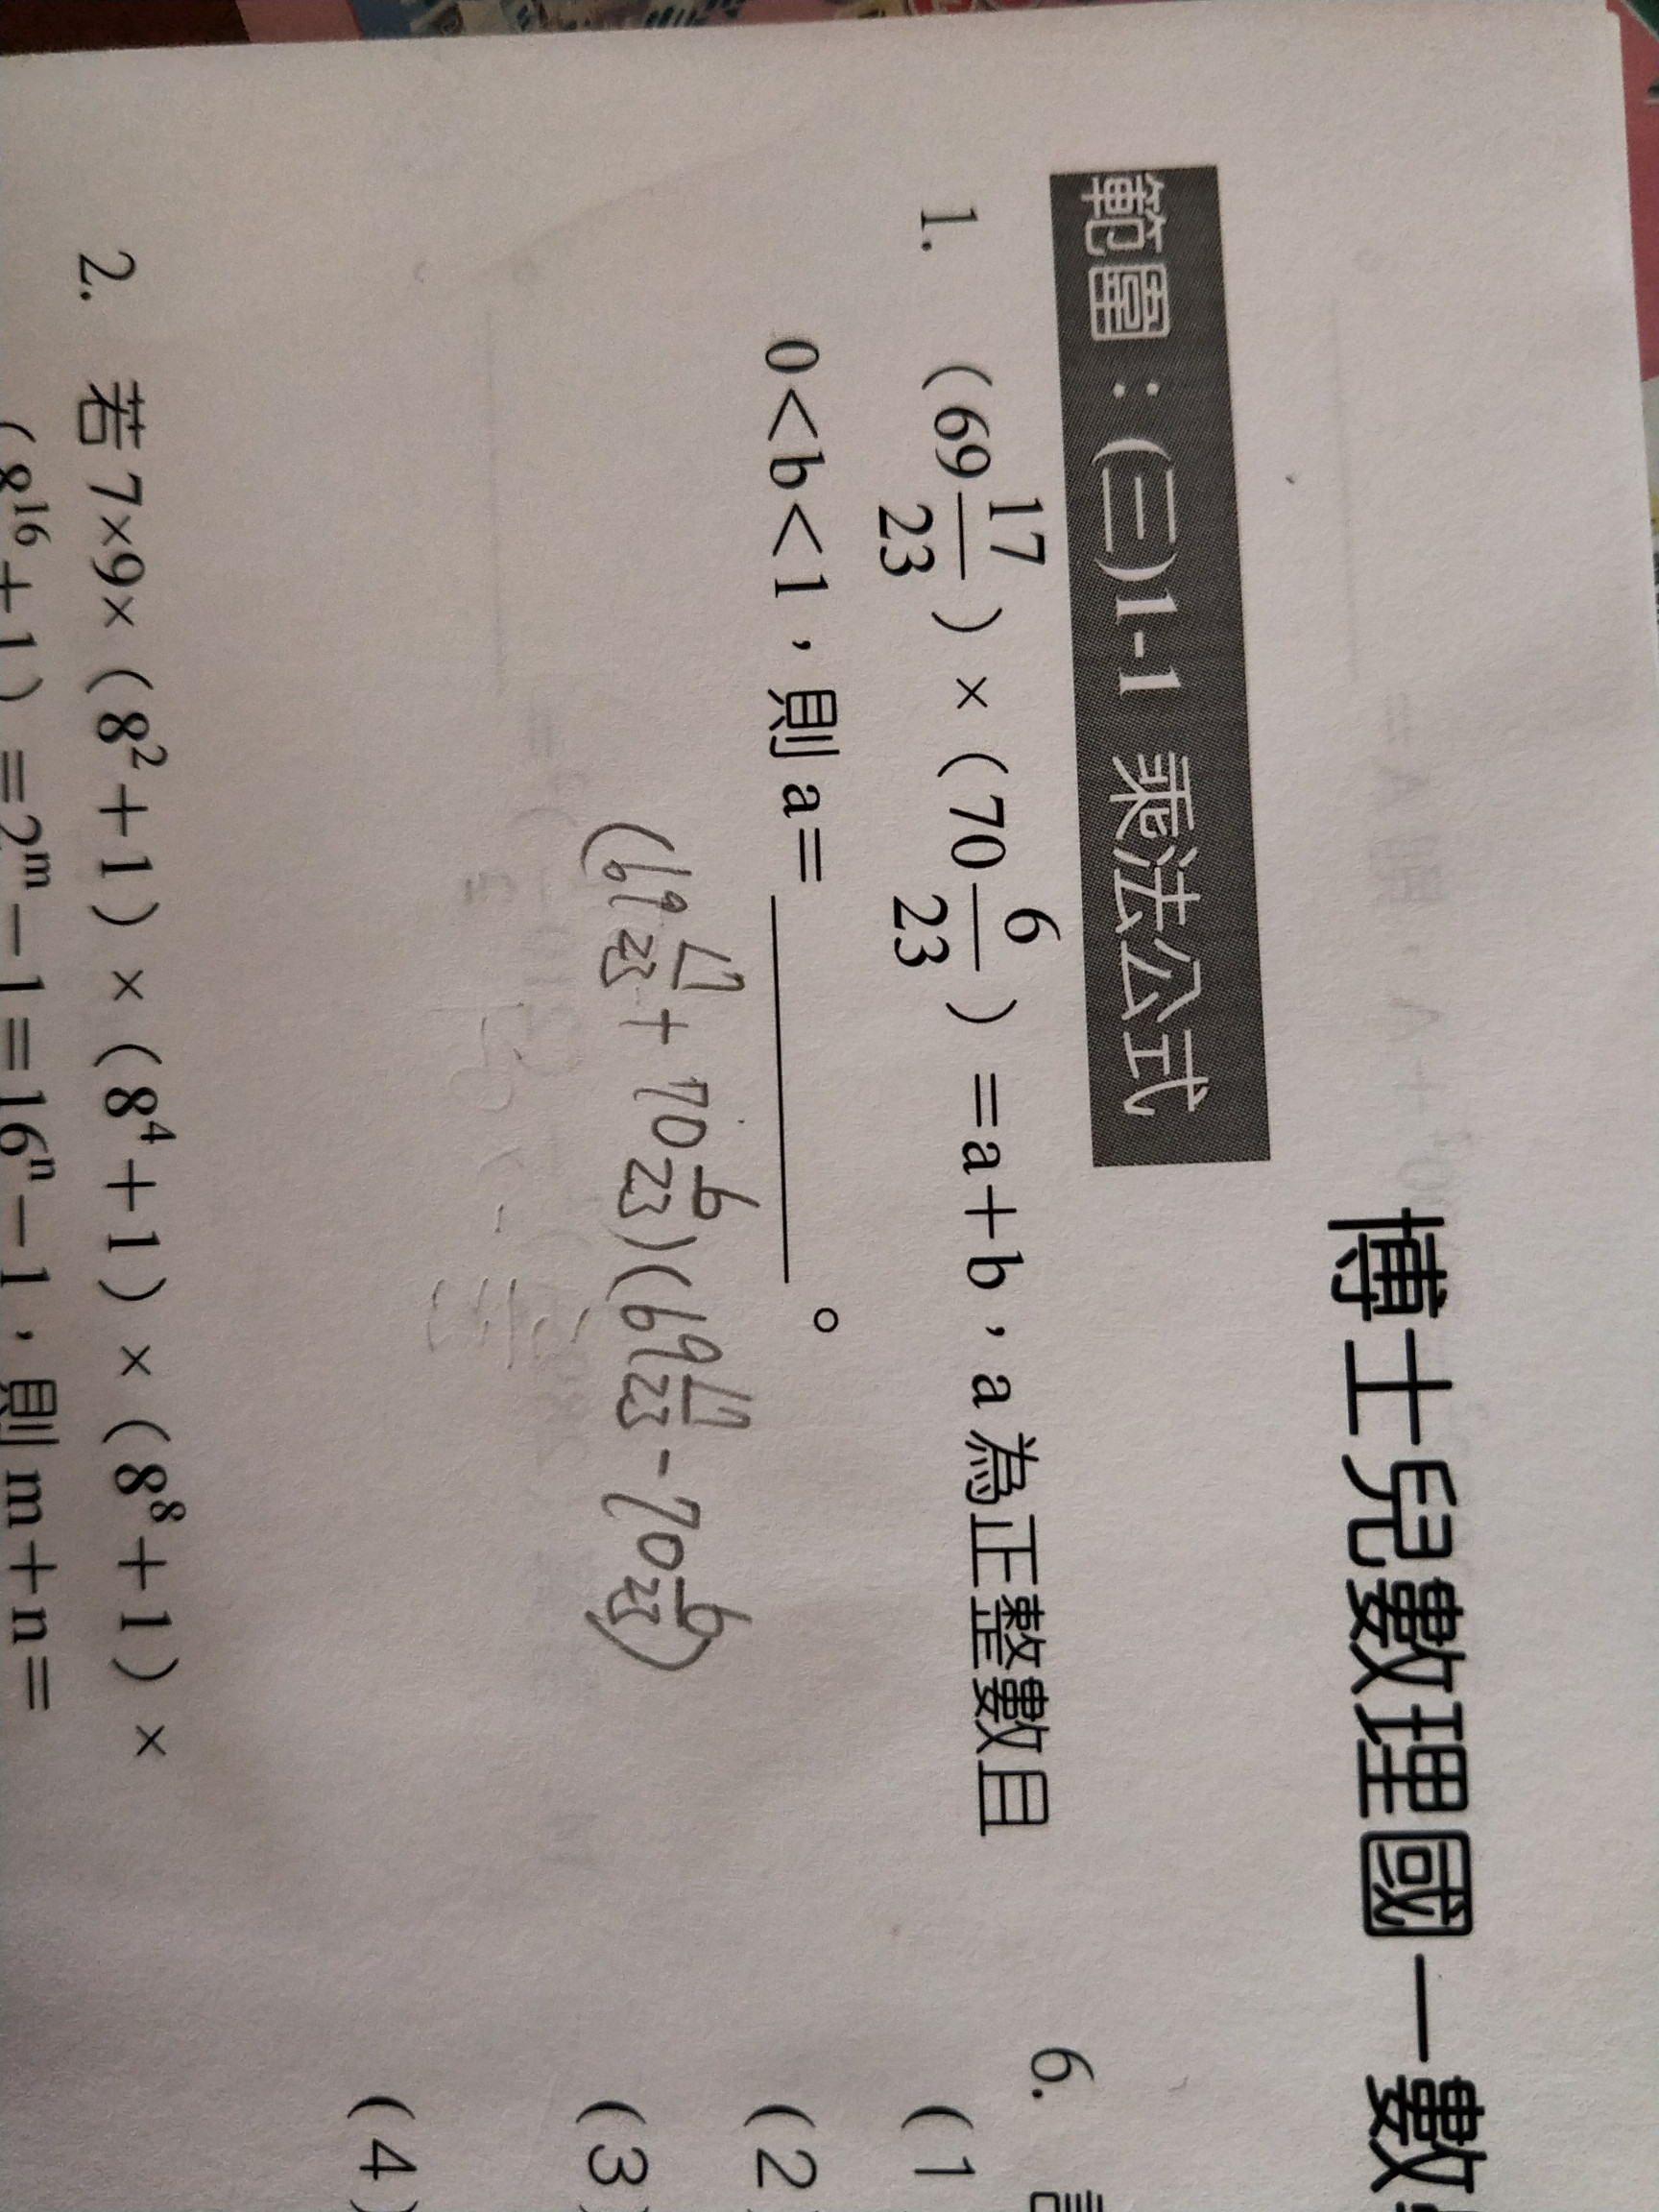 博士兒數理國一數
範圍：(三)1-1 乘法公式
1. （69 17/23）×（70 6/23）＝a＋b，a 為正整數且
0＜b＜1，則 a＝＿＿＿＿＿。
(69 17/23 + 70 6/23)(69 17/23 - 70 6/23)
2. 若 7×9×（8²＋1）×（8⁴＋1）×（8⁸＋1）×
（8¹⁶＋1）＝2ᵐ－1＝16ⁿ－1，則 m＋n＝
6.
(1
(2
(3)
(4)